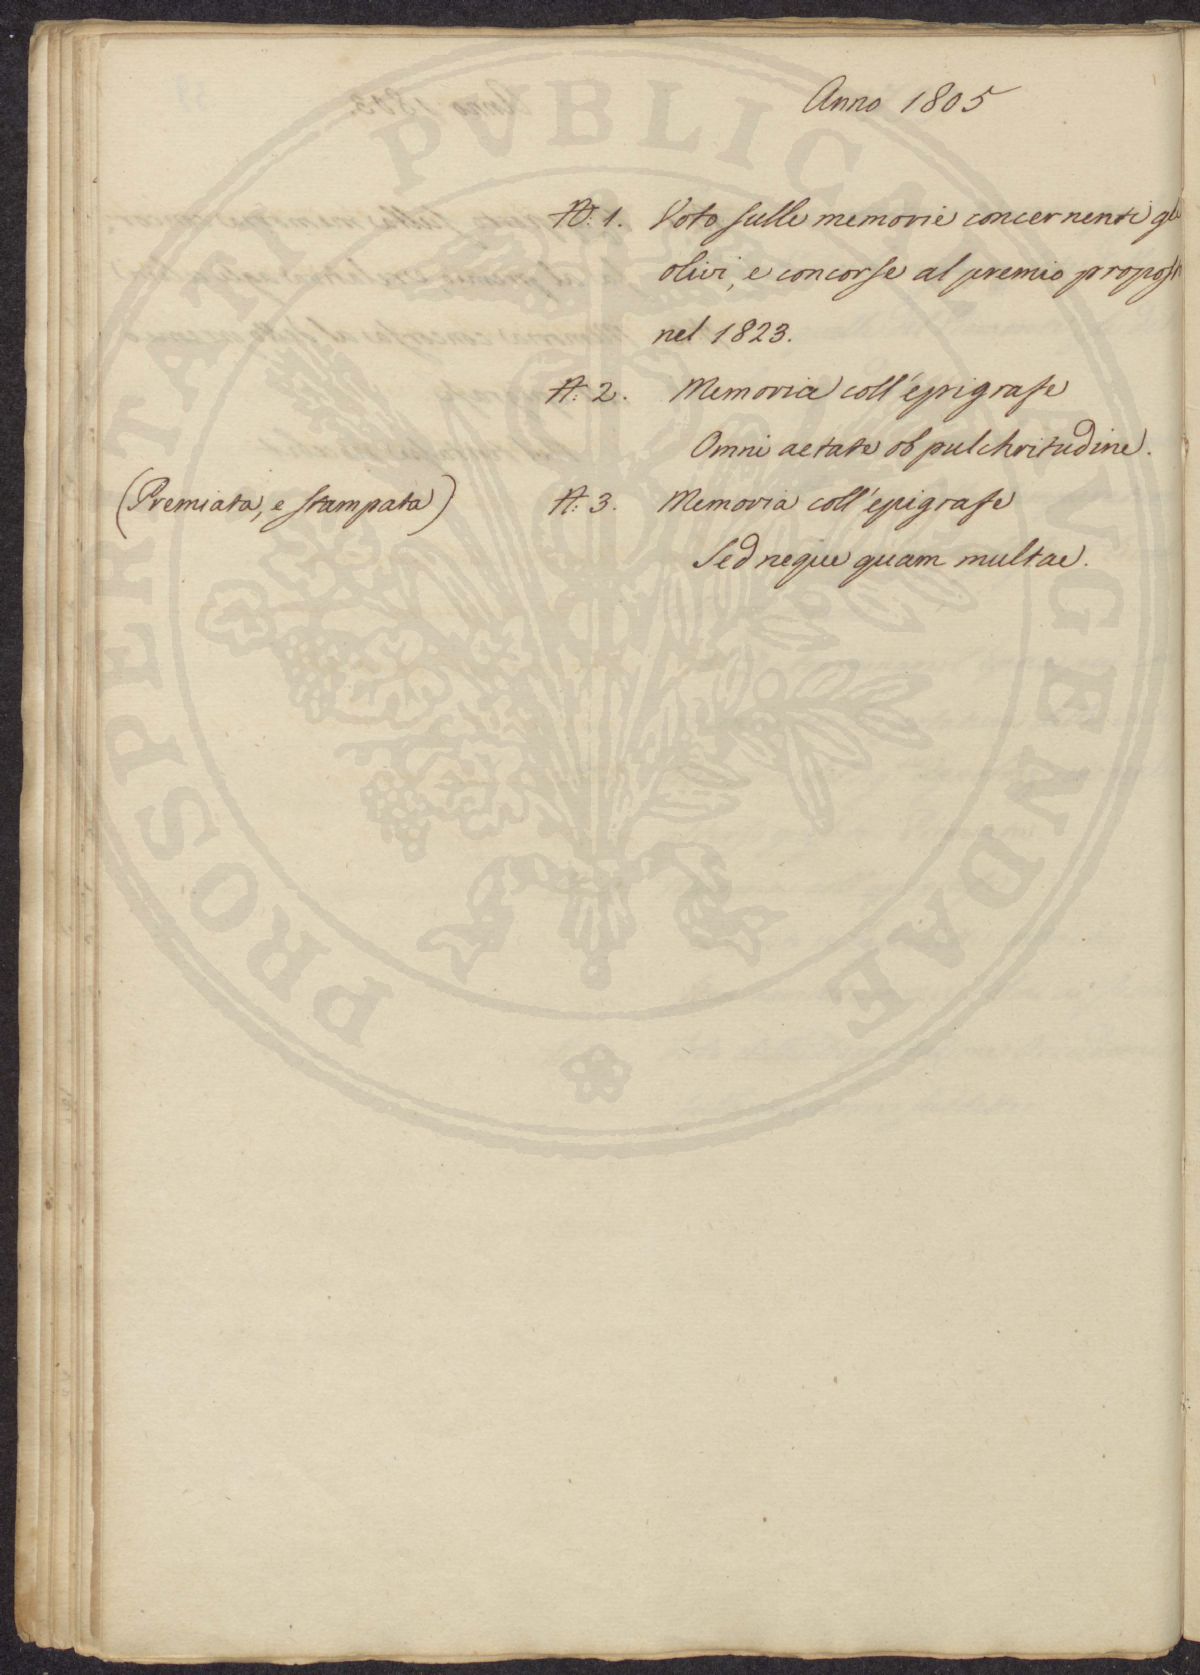 Anno 1805
N: 1. Voto sulle memorie concernenti gli
olivi, e concorse al premio propos
nel 1823.
N: 2. Memoria coll'epigrafe
Omni aetate ob pulchritudine.
(Premiata, e stampata) N: 3. Memoria coll'epigrafe
Sed neque quam multae.
PROSPERITATI PVBLICAE AVGENDAE